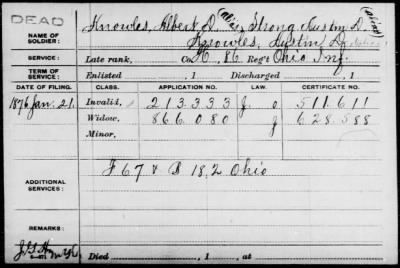 DEAD
NAME OF SOLDIER: Knowles, Albert D. (alias) Strong, Austin D. (alias)
Knowles, Austin D. (alias)
SERVICE: Late rank, Co. H, 86 Reg't Ohio Inf.
TERM OF SERVICE: Enlisted , 1 Discharged , 1
DATE OF FILING. CLASS. APPLICATION NO. CERTIFICATE NO.
1876 Jan. 21. Invalid, 213.333 J. o 511.611
Widow, 866.080 J 628.588
Minor,
ADDITIONAL SERVICES: F 67 & B 182 Ohio
REMARKS:
Died , 1 , at